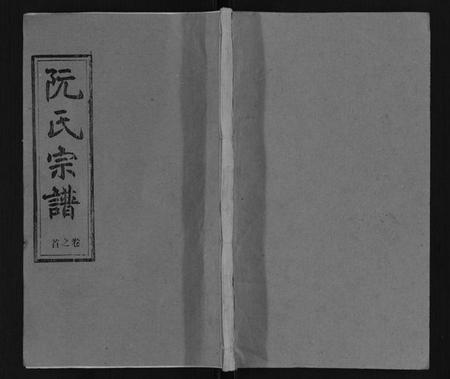 阮氏宗譜
卷之首